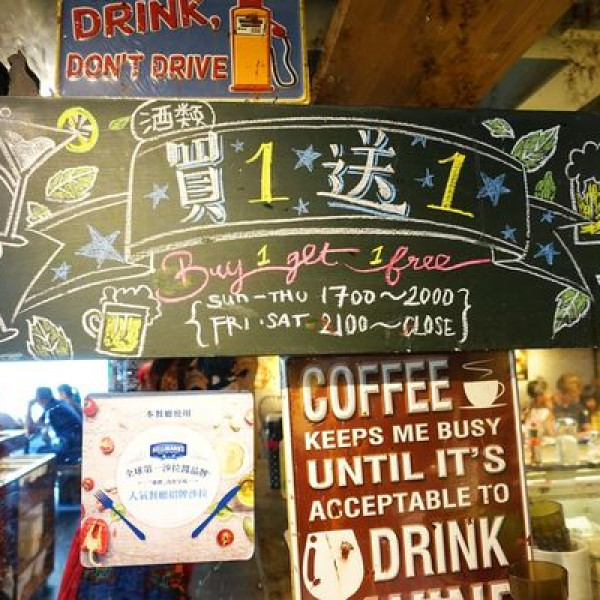 DRINK,
DON'T DRIVE
酒類
買1送1
Buy 1 get 1 free
SUN-THU 1700~2000
FRI.SAT 2100~CLOSE
本餐廳使用
HELLMANN'S
全球第一沙拉醬品牌
人氣餐廳招牌沙拉
COFFEE
KEEPS ME BUSY
UNTIL IT'S
ACCEPTABLE TO
DRINK
WINE